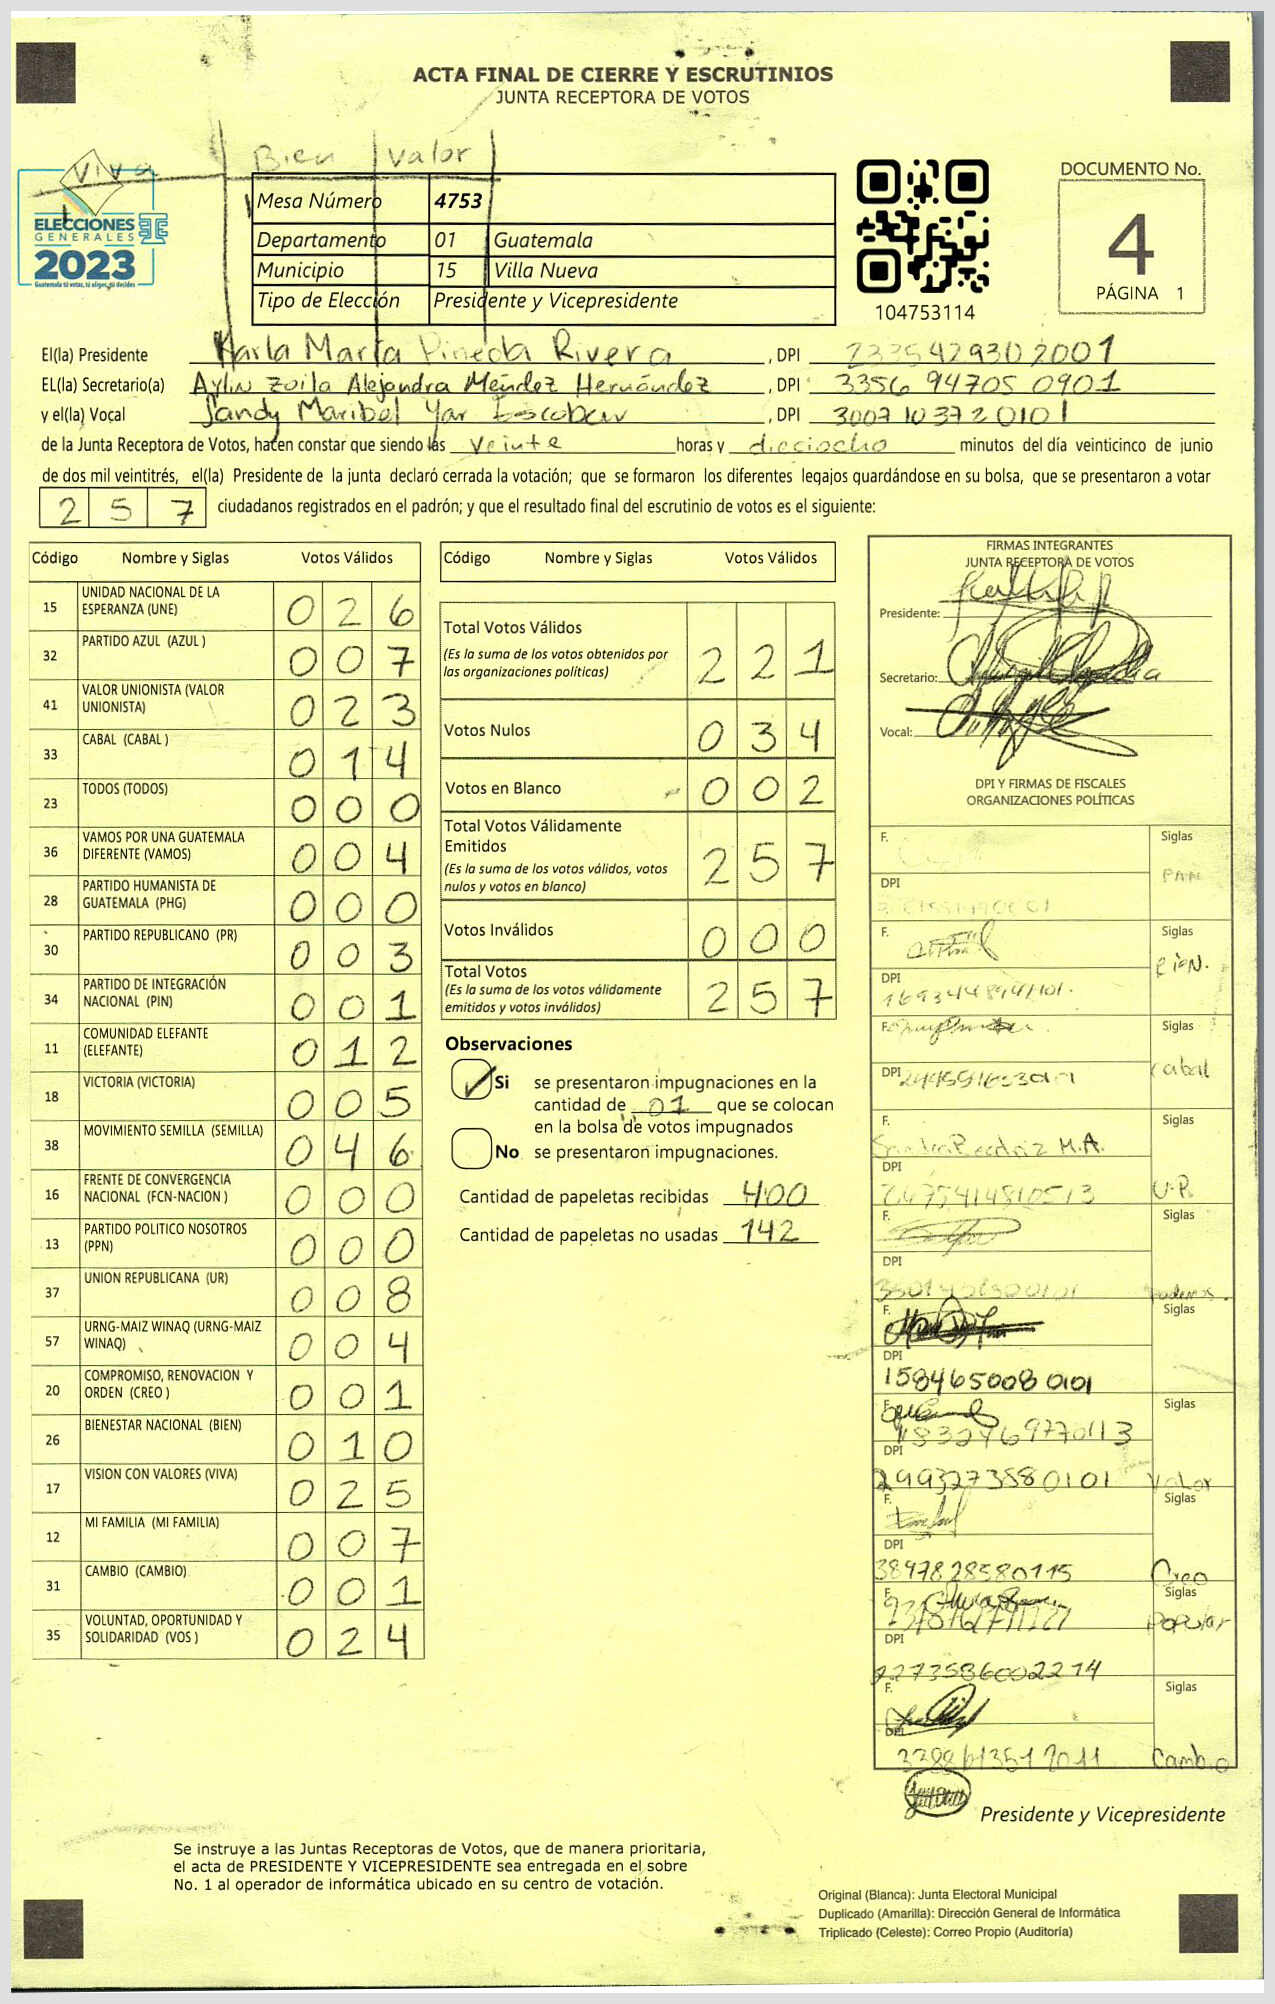 ACTA FINAL DE CIERRE Y ESCRUTINIOS
JUNTA RECEPTORA DE VOTOS
Viva Bien Valor
ELECCIONES
GENERALES
2023
Guatemala tú votas, tú eliges, tú decides
Mesa Número 4753
Departamento 01 Guatemala
Municipio 15 Villa Nueva
Tipo de Elección Presidente y Vicepresidente
104753114
DOCUMENTO No.
4
PÁGINA 1
El(la) Presidente Karla María Pineda Rivera , DPI 2335429302001
EL(la) Secretario(a) Aylin Zoila Alejandra Méndez Hernández , DPI 3356 94705 0901
y el(la) Vocal Sandy Maribel Yar Escobar , DPI 3007 10372 0101
de la Junta Receptora de Votos, hacen constar que siendo las veinte horas y dieciocho minutos del día veinticinco de junio
de dos mil veintitrés, el(la) Presidente de la junta declaró cerrada la votación; que se formaron los diferentes legajos guardándose en su bolsa, que se presentaron a votar
257 ciudadanos registrados en el padrón; y que el resultado final del escrutinio de votos es el siguiente:
Código Nombre y Siglas Votos Válidos
15 UNIDAD NACIONAL DE LA ESPERANZA (UNE) 026
32 PARTIDO AZUL (AZUL ) 007
41 VALOR UNIONISTA (VALOR UNIONISTA) 023
33 CABAL (CABAL ) 014
23 TODOS (TODOS) 000
36 VAMOS POR UNA GUATEMALA DIFERENTE (VAMOS) 004
28 PARTIDO HUMANISTA DE GUATEMALA (PHG) 000
30 PARTIDO REPUBLICANO (PR) 003
34 PARTIDO DE INTEGRACIÓN NACIONAL (PIN) 001
11 COMUNIDAD ELEFANTE (ELEFANTE) 012
18 VICTORIA (VICTORIA) 005
38 MOVIMIENTO SEMILLA (SEMILLA) 046
16 FRENTE DE CONVERGENCIA NACIONAL (FCN-NACION ) 000
13 PARTIDO POLITICO NOSOTROS (PPN) 000
37 UNION REPUBLICANA (UR) 008
57 URNG-MAIZ WINAQ (URNG-MAIZ WINAQ) 004
20 COMPROMISO, RENOVACION Y ORDEN (CREO ) 001
26 BIENESTAR NACIONAL (BIEN) 010
17 VISION CON VALORES (VIVA) 025
12 MI FAMILIA (MI FAMILIA) 007
31 CAMBIO (CAMBIO) 001
35 VOLUNTAD, OPORTUNIDAD Y SOLIDARIDAD (VOS ) 024
Código Nombre y Siglas Votos Válidos
Total Votos Válidos 221
(Es la suma de los votos obtenidos por
las organizaciones políticas)
Votos Nulos 034
Votos en Blanco 002
Total Votos Válidamente
Emitidos 257
(Es la suma de los votos válidos, votos
nulos y votos en blanco)
Votos Inválidos 000
Total Votos 257
(Es la suma de los votos válidamente
emitidos y votos inválidos)
Observaciones
Si se presentaron impugnaciones en la
cantidad de 01 que se colocan
en la bolsa de votos impugnados
No se presentaron impugnaciones.
Cantidad de papeletas recibidas 400
Cantidad de papeletas no usadas 142
FIRMAS INTEGRANTES
JUNTA RECEPTORA DE VOTOS
Presidente:
Secretario:
Vocal:
DPI Y FIRMAS DE FISCALES
ORGANIZACIONES POLÍTICAS
F. Siglas
DPI
F. Siglas
DPI
F. Siglas
DPI Cabal
F. Siglas
Sandra Beatriz M.A.
DPI
2675414810513 U.R.
F. Siglas
DPI
F. Siglas
DPI
158465008 0101
F. Siglas
DPI
299327358 0101 Valor
F. Siglas
DPI
3847828580115 Creo
F. Siglas
Popular
DPI
227358600 2214
F. Siglas
DPI
Cambio
Presidente y Vicepresidente
Se instruye a las Juntas Receptoras de Votos, que de manera prioritaria,
el acta de PRESIDENTE Y VICEPRESIDENTE sea entregada en el sobre
No. 1 al operador de informática ubicado en su centro de votación.
Original (Blanca): Junta Electoral Municipal
Duplicado (Amarilla): Dirección General de Informática
Triplicado (Celeste): Correo Propio (Auditoría)